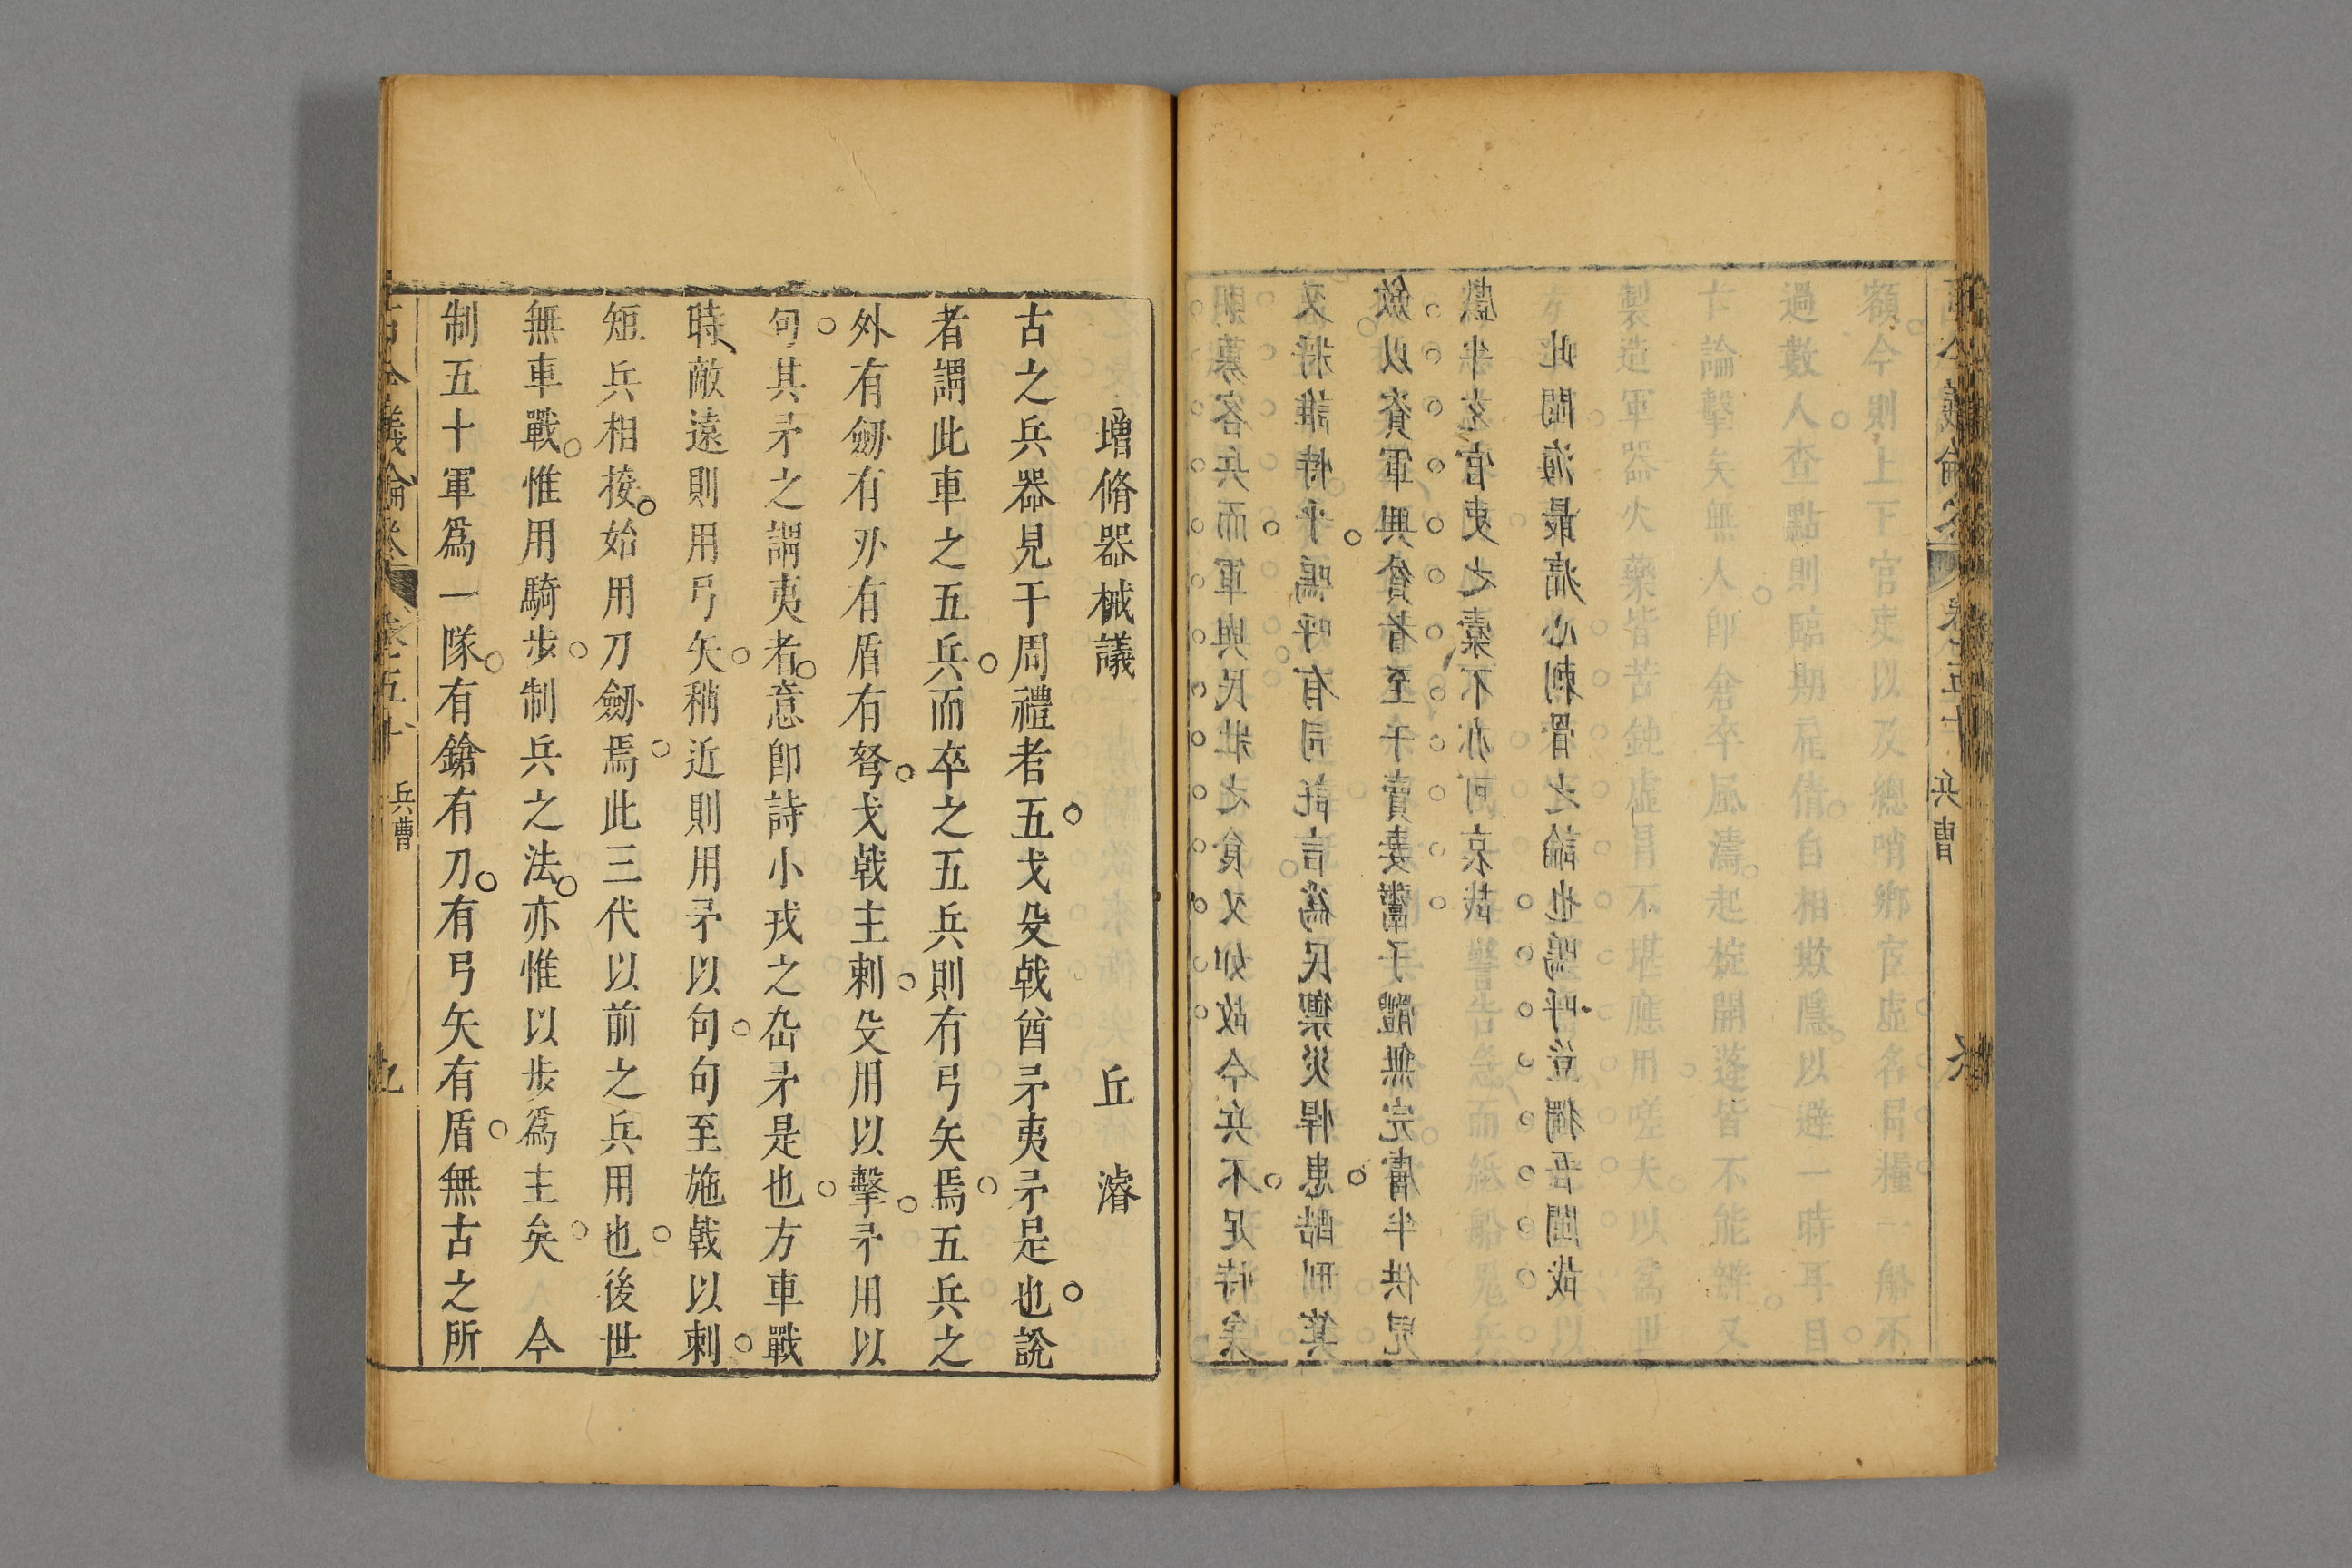 額今則上下官吏以及總哨鄉官虛名冒糧一船不
過數人查點則臨期雇倩自相欺隱以避一時耳目
論擊矣無人卽倉卒風濤起椗開蓬皆不能辦又
製造軍器火藥皆苦鈍虛冒不堪應用嗟夫以當世
則募客兵而軍與民壯之食又如故今兵不足恃矣
又將誰恃乎嗚呼有司託言爲民禦災悍患酷刑箕
斂以資軍興貧者至于賣妻鬻子體無完膚半供兒
戲半充官吏之橐不亦可哀哉
此閩海最痛心刺骨之論也嗚呼豈獨吾閩哉
兵曹
增脩器械議　丘濬
古之兵器見于周禮者五戈殳戟酋矛夷矛是也說
者謂此車之五兵而卒之五兵則有弓矢焉五兵之
外有劒有刅有盾有弩戈戟主刺殳用以擊矛用以
句其矛之謂夷者意卽詩小戎之厹矛是也方車戰
時敵遠則用弓矢稍近則用矛以句句至施戟以刺
短兵相接始用刀劒焉此三代以前之兵用也後世
無車戰惟用騎步制兵之法亦惟以步爲主矣　今
制五十軍爲一隊有鎗有刀有弓矢有盾無古之所
古今議論　卷五十　兵曹　九